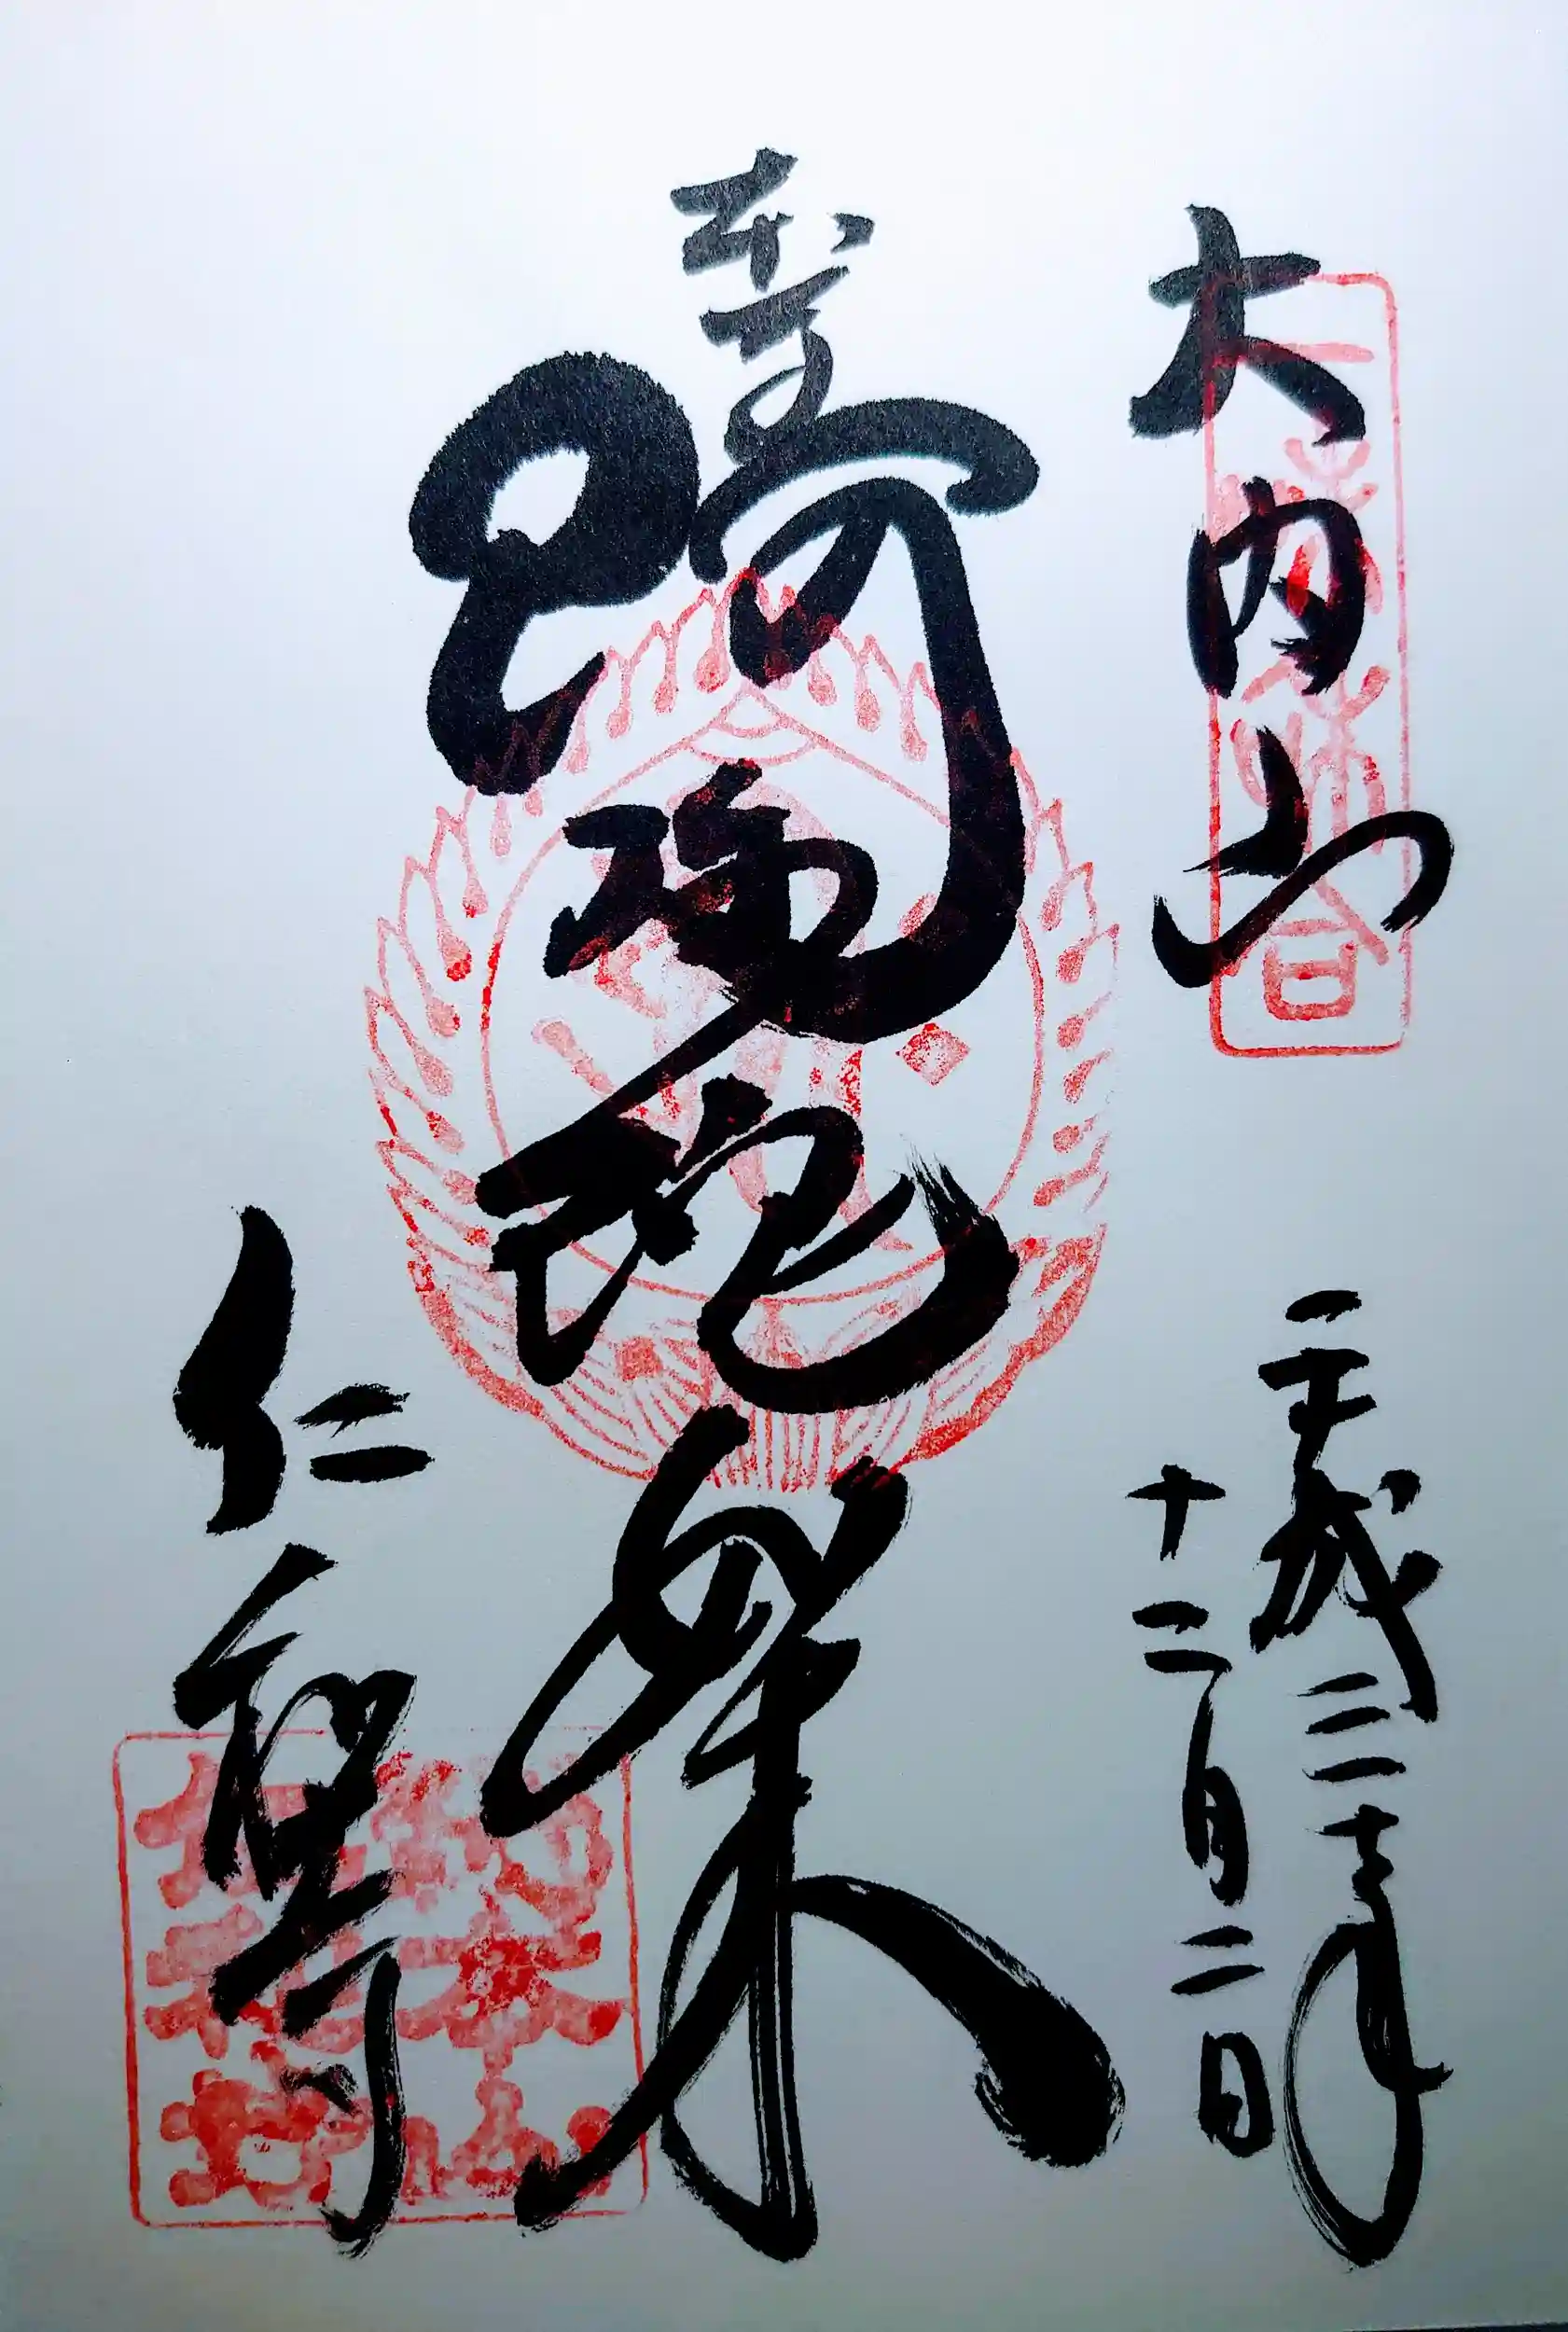 大内山
平成三十年
十二月二日
本尊
阿弥陀如来
仁和寺
総本山
仁和寺